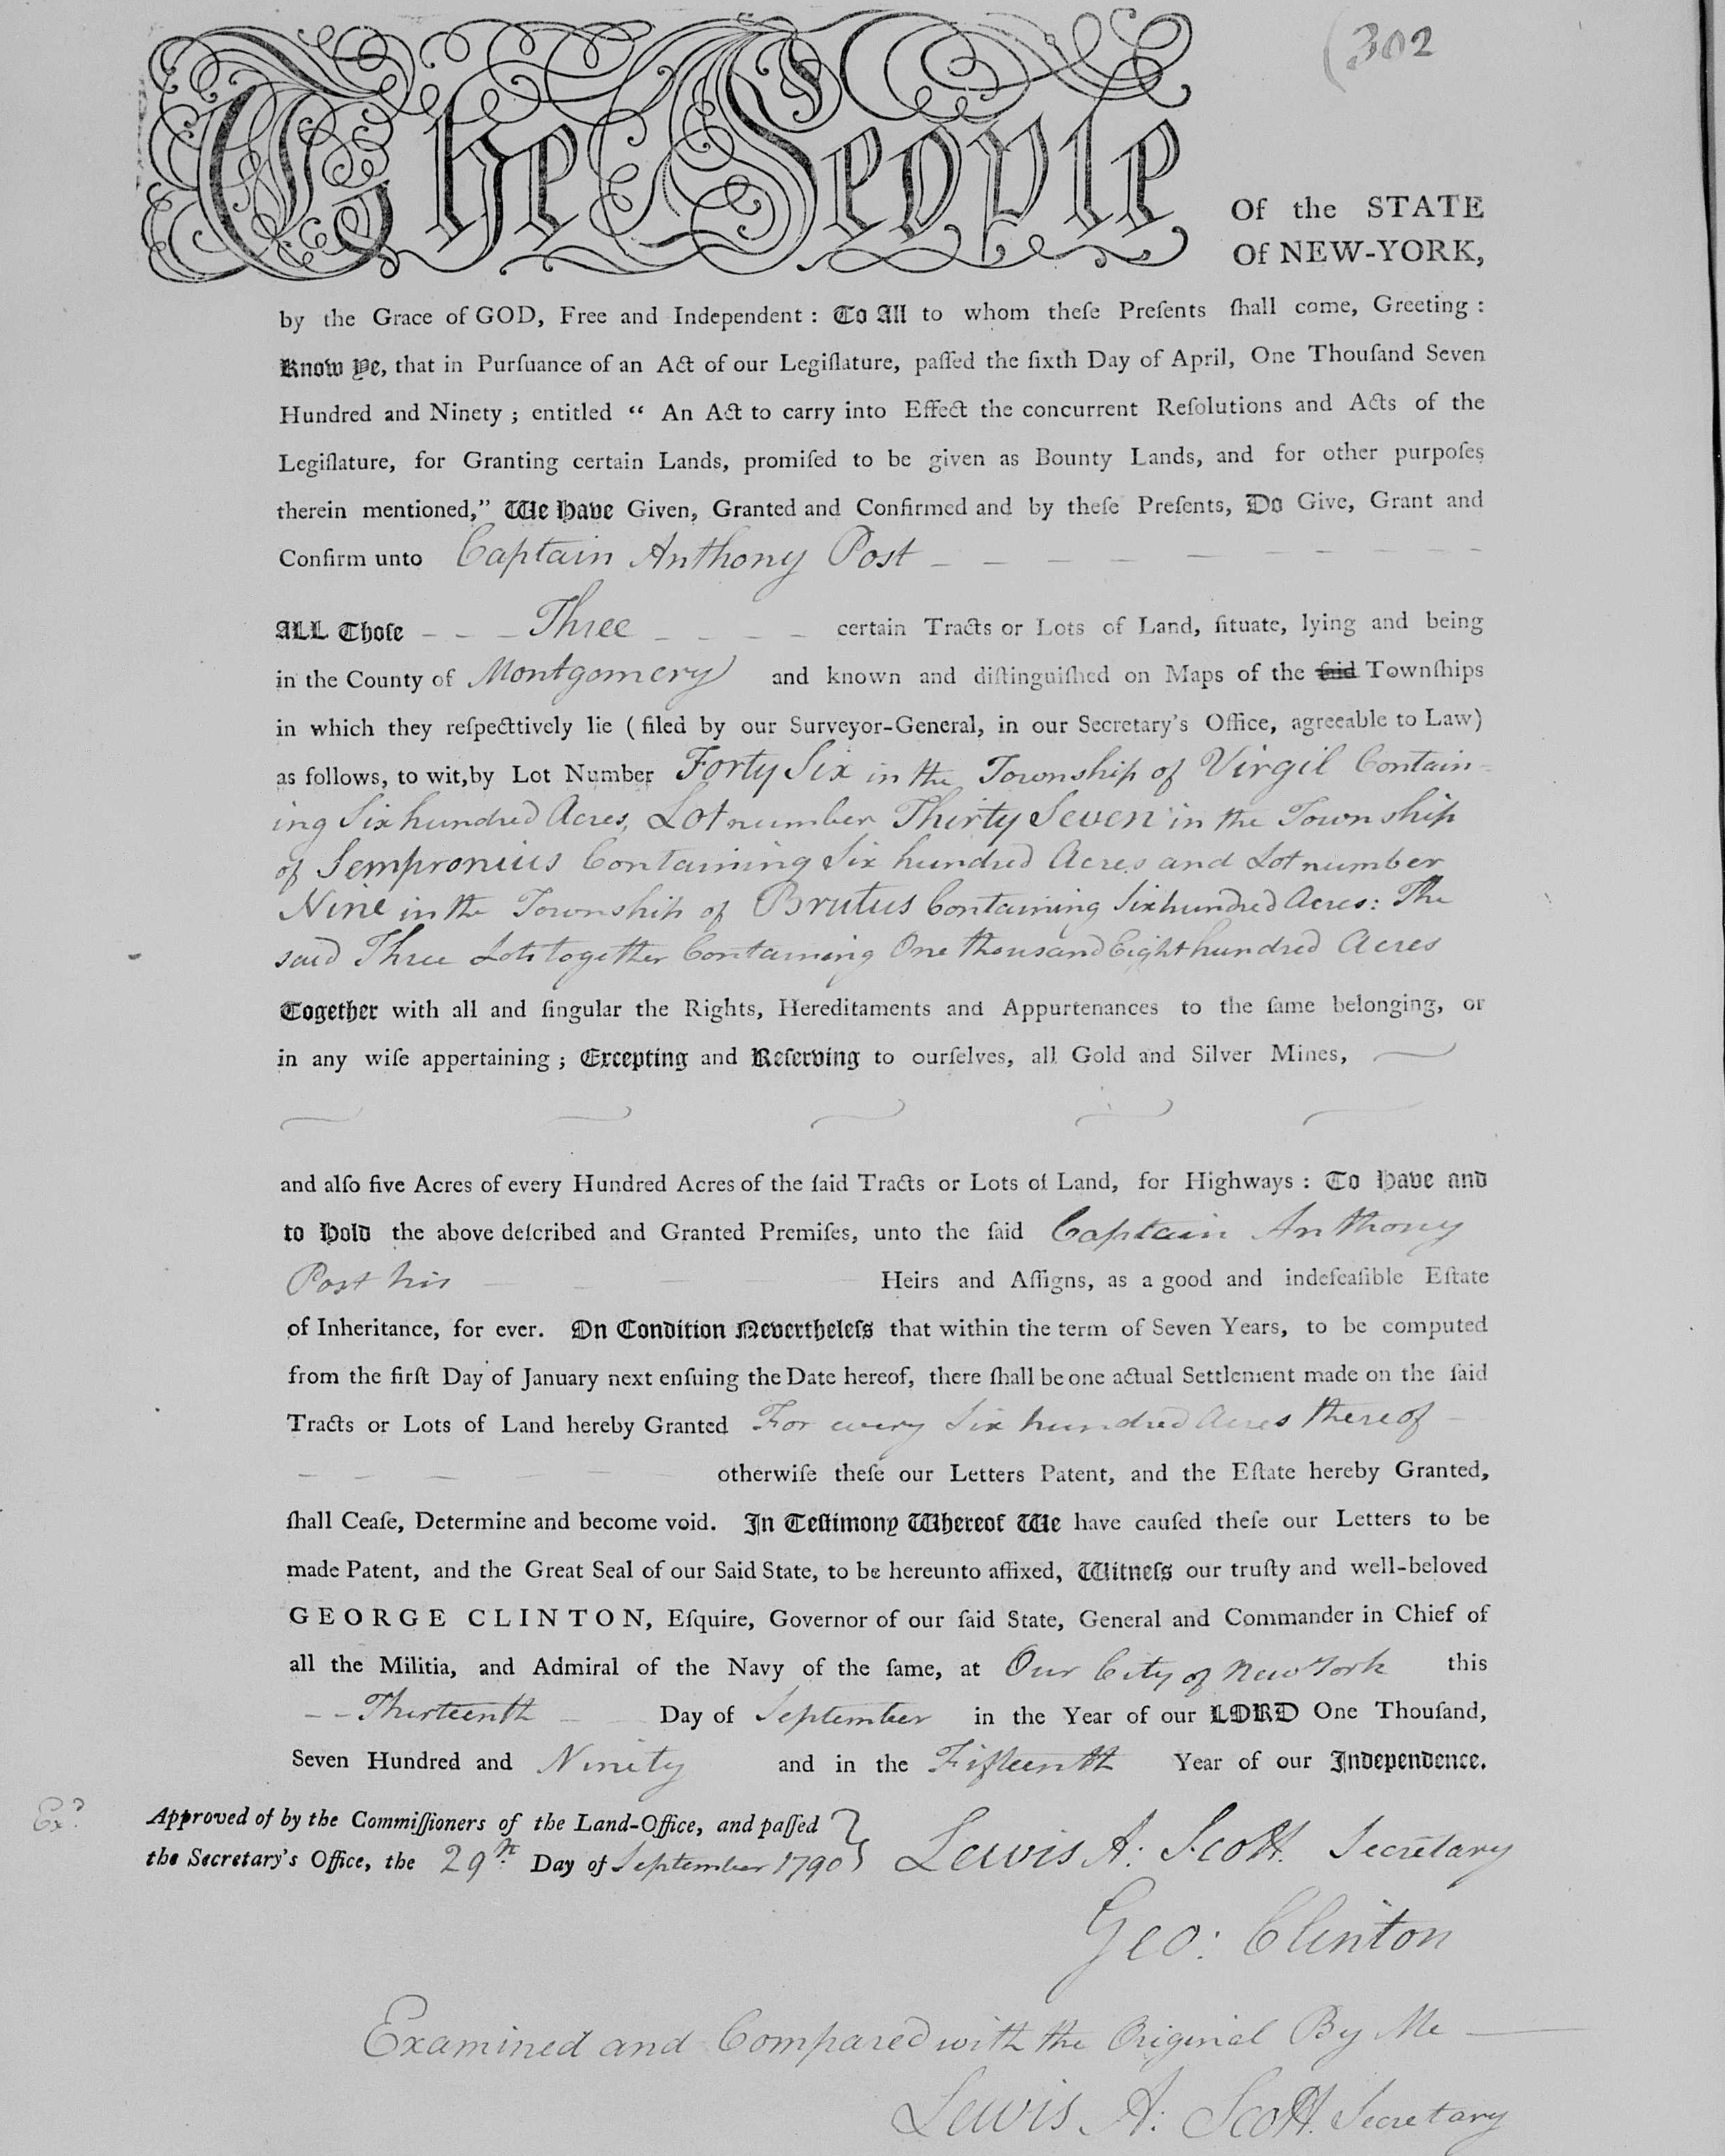 (302
The People
Of the STATE
Of NEW-YORK,
by the Grace of GOD, Free and Independent : To All to whom theſe Preſents ſhall come, Greeting :
Know Ye, that in Purſuance of an Act of our Legiſlature, paſſed the ſixth Day of April, One Thouſand Seven
Hundred and Ninety ; entitled “ An Act to carry into Effect the concurrent Reſolutions and Acts of the
Legiſlature, for Granting certain Lands, promiſed to be given as Bounty Lands, and for other purpoſes
therein mentioned,” We Have Given, Granted and Confirmed and by theſe Preſents, Do Give, Grant and
Confirm unto Captain Anthony Post
ALL Thoſe Three certain Tracts or Lots of Land, ſituate, lying and being
in the County of Montgomery and known and diſtinguiſhed on Maps of the ſaid Townſhips
in which they reſpecttively lie ( filed by our Surveyor-General, in our Secretary's Office, agreeable to Law)
as follows, to wit,by Lot Number Forty Six in the Township of Virgil Contain-
ing Six hundred Acres, Lot number Thirty Seven in the Township
of Sempronius Containing Six hundred Acres and Lot number
Nine in the Township of Brutus Containing Six hundred Acres: The
said Three Lots together Containing One thousand Eight hundred Acres
Together with all and ſingular the Rights, Hereditaments and Appurtenances to the ſame belonging, or
in any wiſe appertaining ; Excepting and Reſerving to ourſelves, all Gold and Silver Mines,
and alſo five Acres of every Hundred Acres of the ſaid Tracts or Lots of Land, for Highways : To Have and
to Hold the above deſcribed and Granted Premiſes, unto the ſaid Captain Anthony
Post his Heirs and Aſſigns, as a good and indefeaſible Eſtate
of Inheritance, for ever. On Condition Nevertheleſs that within the term of Seven Years, to be computed
from the firſt Day of January next enſuing the Date hereof, there ſhall be one actual Settlement made on the ſaid
Tracts or Lots of Land hereby Granted For every Six hundred Acres thereof
otherwiſe theſe our Letters Patent, and the Eſtate hereby Granted,
ſhall Ceaſe, Determine and become void. In Teſtimony Whereof We have cauſed theſe our Letters to be
made Patent, and the Great Seal of our Said State, to be hereunto affixed, Witneſs our truſty and well-beloved
GEORGE CLINTON, Eſquire, Governor of our ſaid State, General and Commander in Chief of
all the Militia, and Admiral of the Navy of the ſame, at Our City of New York this
Thirteenth Day of September in the Year of our LORD One Thouſand,
Seven Hundred and Ninety and in the Fifteenth Year of our Independence.
Ex.d
Approved of by the Commiſſioners of the Land-Office, and paſſed
the Secretary's Office, the 29th Day of September 1790
Lewis A: Scott. Secretary
Geo: Clinton
Examined and Compared with the Original By Me
Lewis A: Scott. Secretary